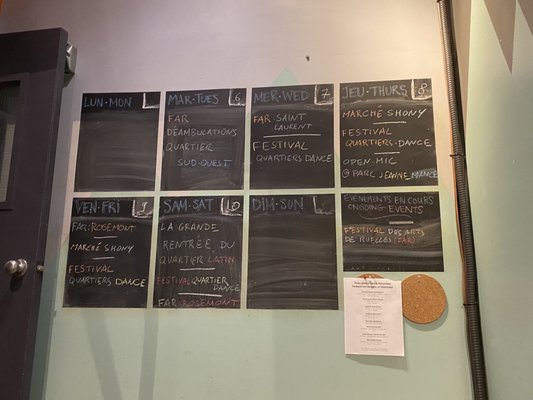 LUN·MON
MAR·TUES 6
FAR
DÉAMBULATIONS
QUARTIER
SUD-OUEST
MER·WED 7
FAR SAINT
LAURENT
FESTIVAL
QUARTIERS DANCE
JEU·THURS 8
MARCHÉ SHONY
FESTIVAL
QUARTIERS·DANCE
OPEN·MIC
@ PARC JEANNE MANCE
VEN·FRI 9
FAR: ROSEMONT
MARCHÉ SHONY
FESTIVAL
QUARTIERS DANCE
SAM·SAT 10
LA GRANDE
RENTRÉE DU
QUARTIER LATIN
FESTIVAL QUARTIER
DANCE
FAR ROSEMONT
DIM·SUN
EVENEMENTS EN COURS
ONGOING·EVENTS
FESTIVAL DES ARTS
DE RUELLES (FAR)